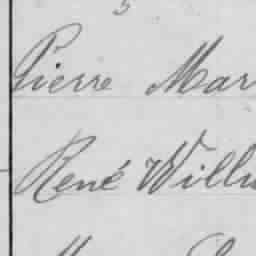 Pierre Mar
René Willi